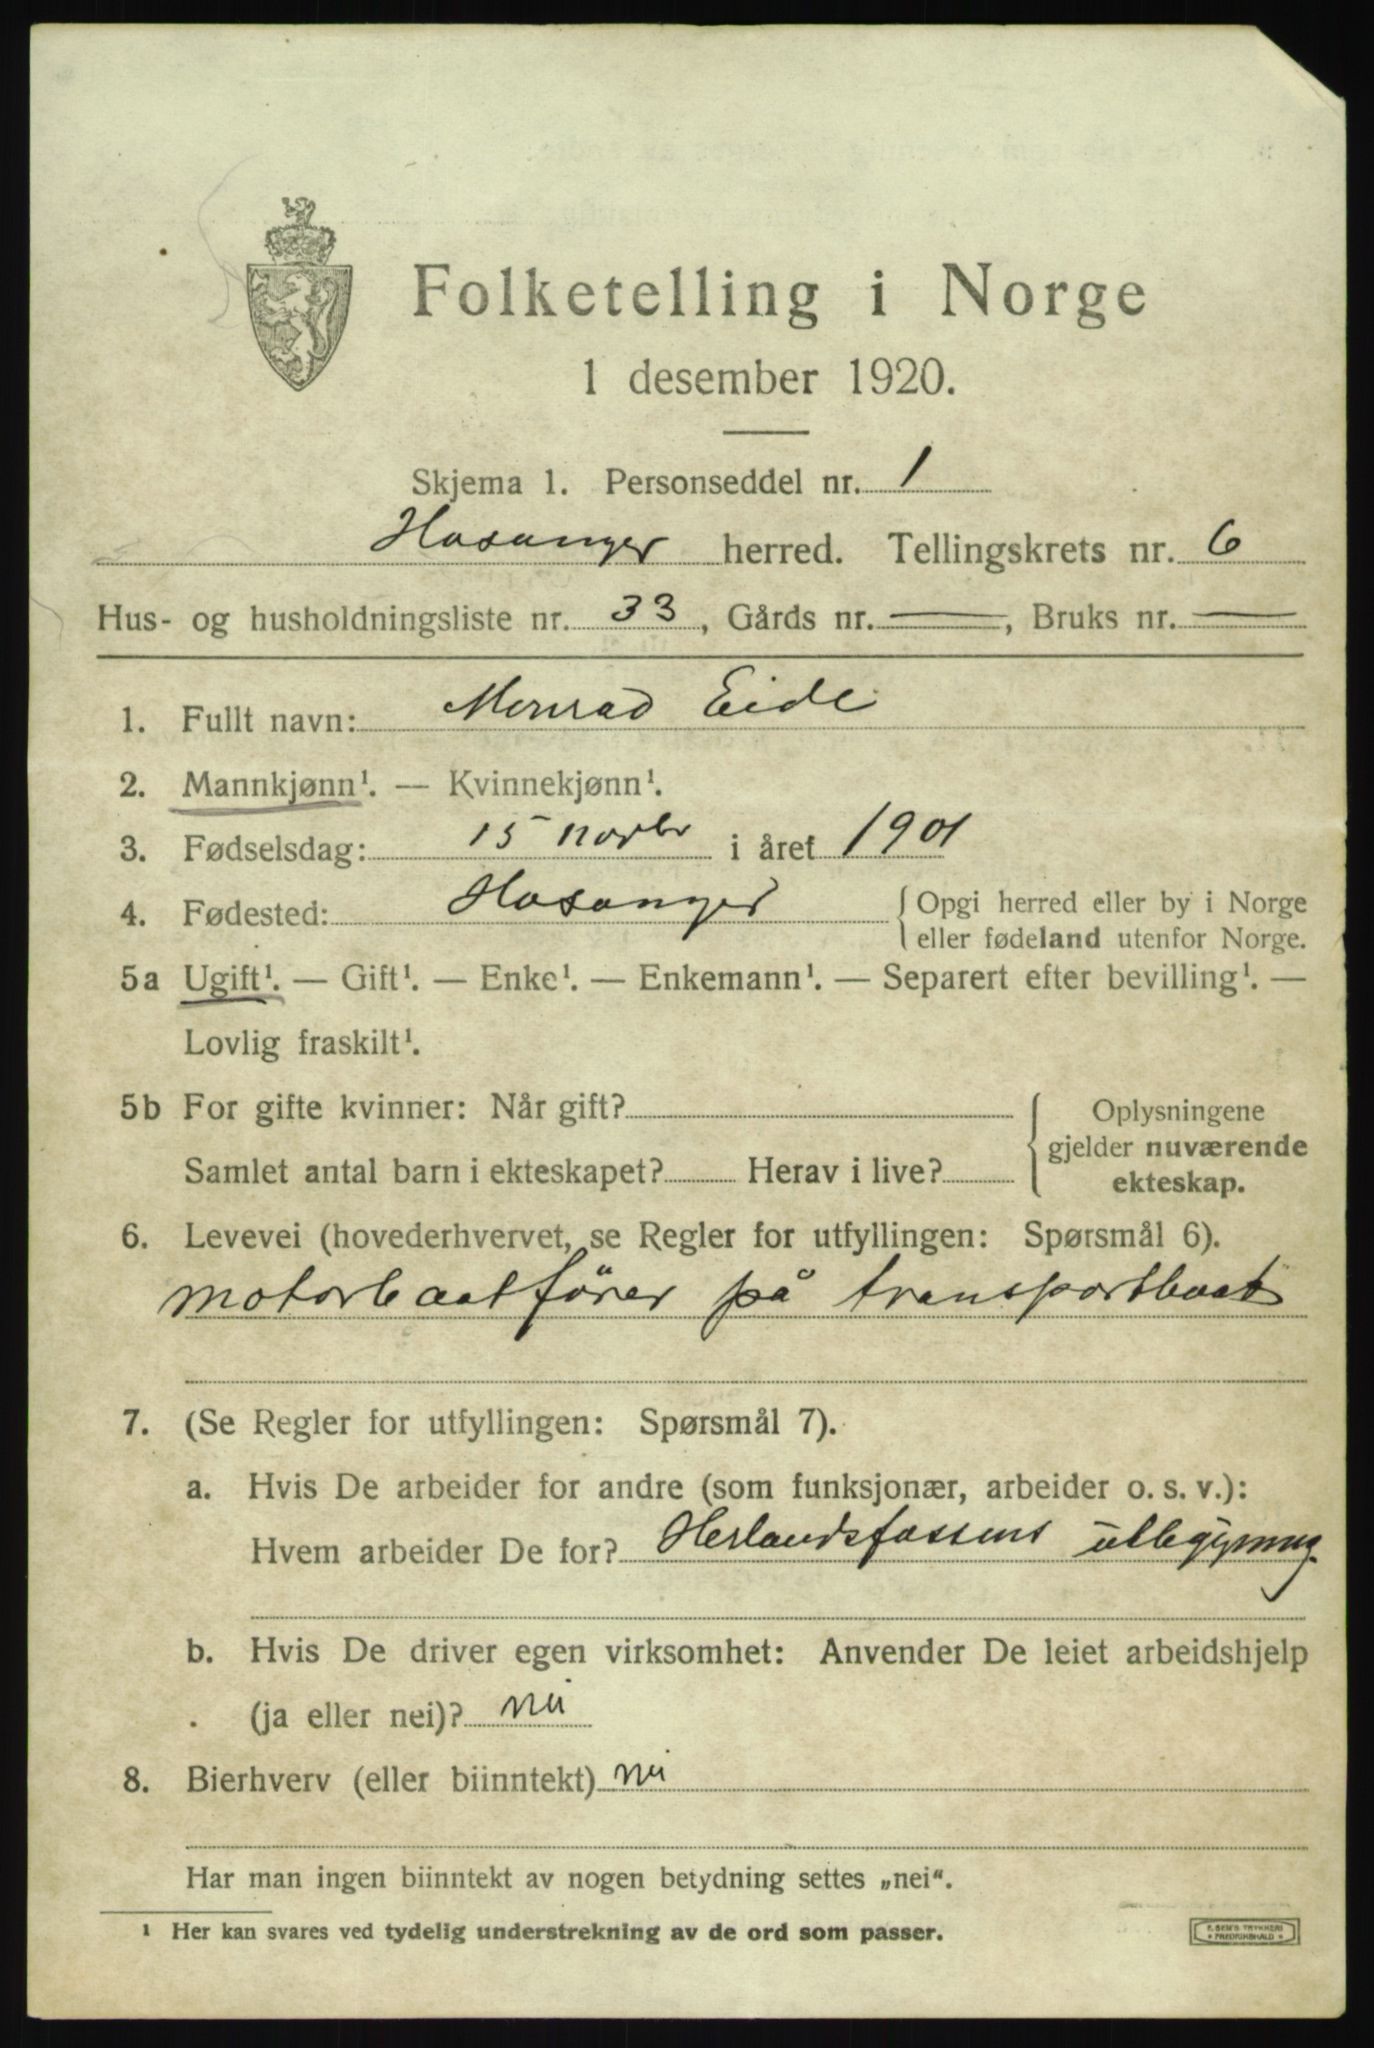 Folketelling i Norge
1 desember 1920.
Skjema 1. Personseddel nr. 1
Hosanger herred. Tellingskrets nr. 6
Hus- og husholdningsliste nr. 33, Gårds nr. —, Bruks nr. —
1. Fullt navn: Monrad Eide
2. Mannkjønn¹. — Kvinnekjønn¹.
3. Fødselsdag: 15 novbr i året 1901
4. Fødested: Hosanger {Opgi herred eller by i Norge
eller fødeland utenfor Norge.
5a Ugift¹. — Gift¹. — Enke¹. — Enkemann¹. — Separert efter bevilling¹. —
Lovlig fraskilt¹.
5b For gifte kvinner: Når gift? {Oplysningene
gjelder nuværende
Samlet antal barn i ekteskapet? Herav i live?
ekteskap.
6. Levevei (hovederhvervet, se Regler for utfyllingen: Spørsmål 6).
motorbaatförer på transportbaat
7. (Se Regler for utfyllingen: Spørsmål 7).
a. Hvis De arbeider for andre (som funksjonær, arbeider o. s. v.):
Hvem arbeider De for? Herlandsfossens utbygning.
b. Hvis De driver egen virksomhet: Anvender De leiet arbeidshjelp
(ja eller nei)? nei
8. Bierhverv (eller biinntekt) nei
Har man ingen biinntekt av nogen betydning settes „nei“.
¹ Her kan svares ved tydelig understrekning av de ord som passer.
E. SEM'S TRYKKERI
* FREDRIKSHALD *